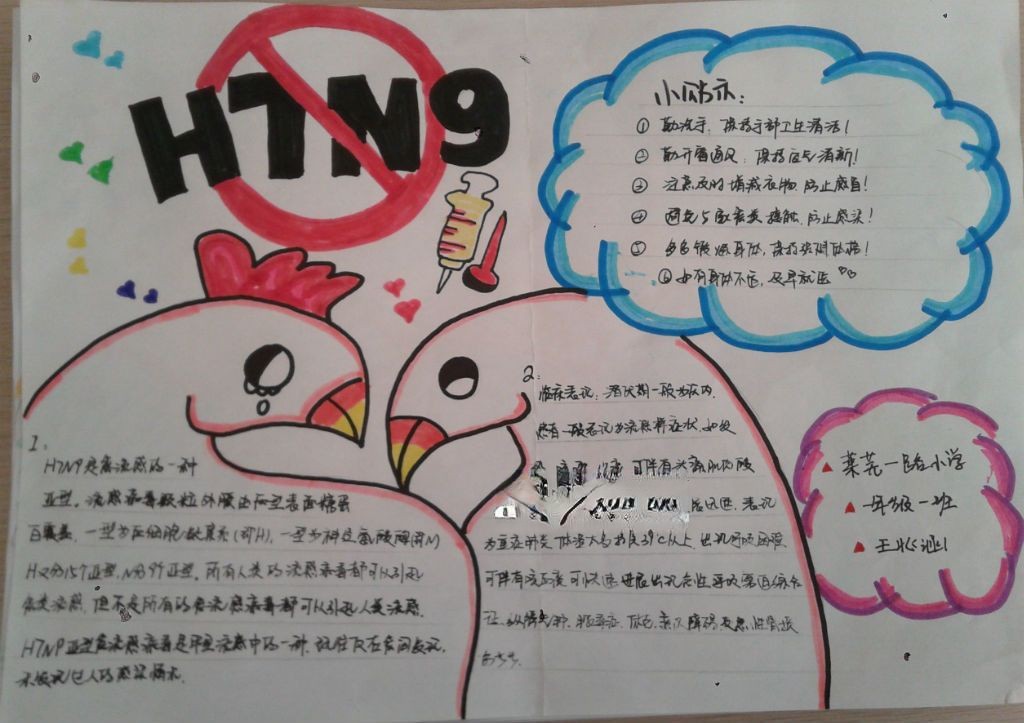 H7N9
小贴示：
① 勤洗手，保持手部卫生清洁！
② 勤开窗通风，保持空气清新！
③ 注意及时增减衣物，防止感冒！
④ 避免与家禽类接触，防止感染！
⑤ 多多锻炼身体，保持强
⑥ 如有身体不适，及早就医
1.
H7N9是禽流感的一种
亚型。流感病毒颗粒外膜由两型表面糖蛋
白覆盖，一型为血细胞凝集素(即H)，一型为神经氨酸酶(即N)
H又分15个亚型，N分9个亚型，所有人类的流感病毒都可以引起
禽类流感，但不是所有的禽流感病毒都可以引起人类流感。
H7N9亚型禽流感病毒是甲型流感中的一种，既往仅在禽间发现，
未发现过人的感染情况。
2：
临床表现：潜伏期一般为7天内。
患者一般表现为流感样症状，如发
可伴有头痛肌肉酸
迅速，表现
为重症肺炎，体温大多持续39℃以上，出现呼吸困难
可伴有 可快速进展出现急性呼吸窘迫综合
征、纵膈 休克、意识障碍及急性肾
莱芜一路小学
一年级一班